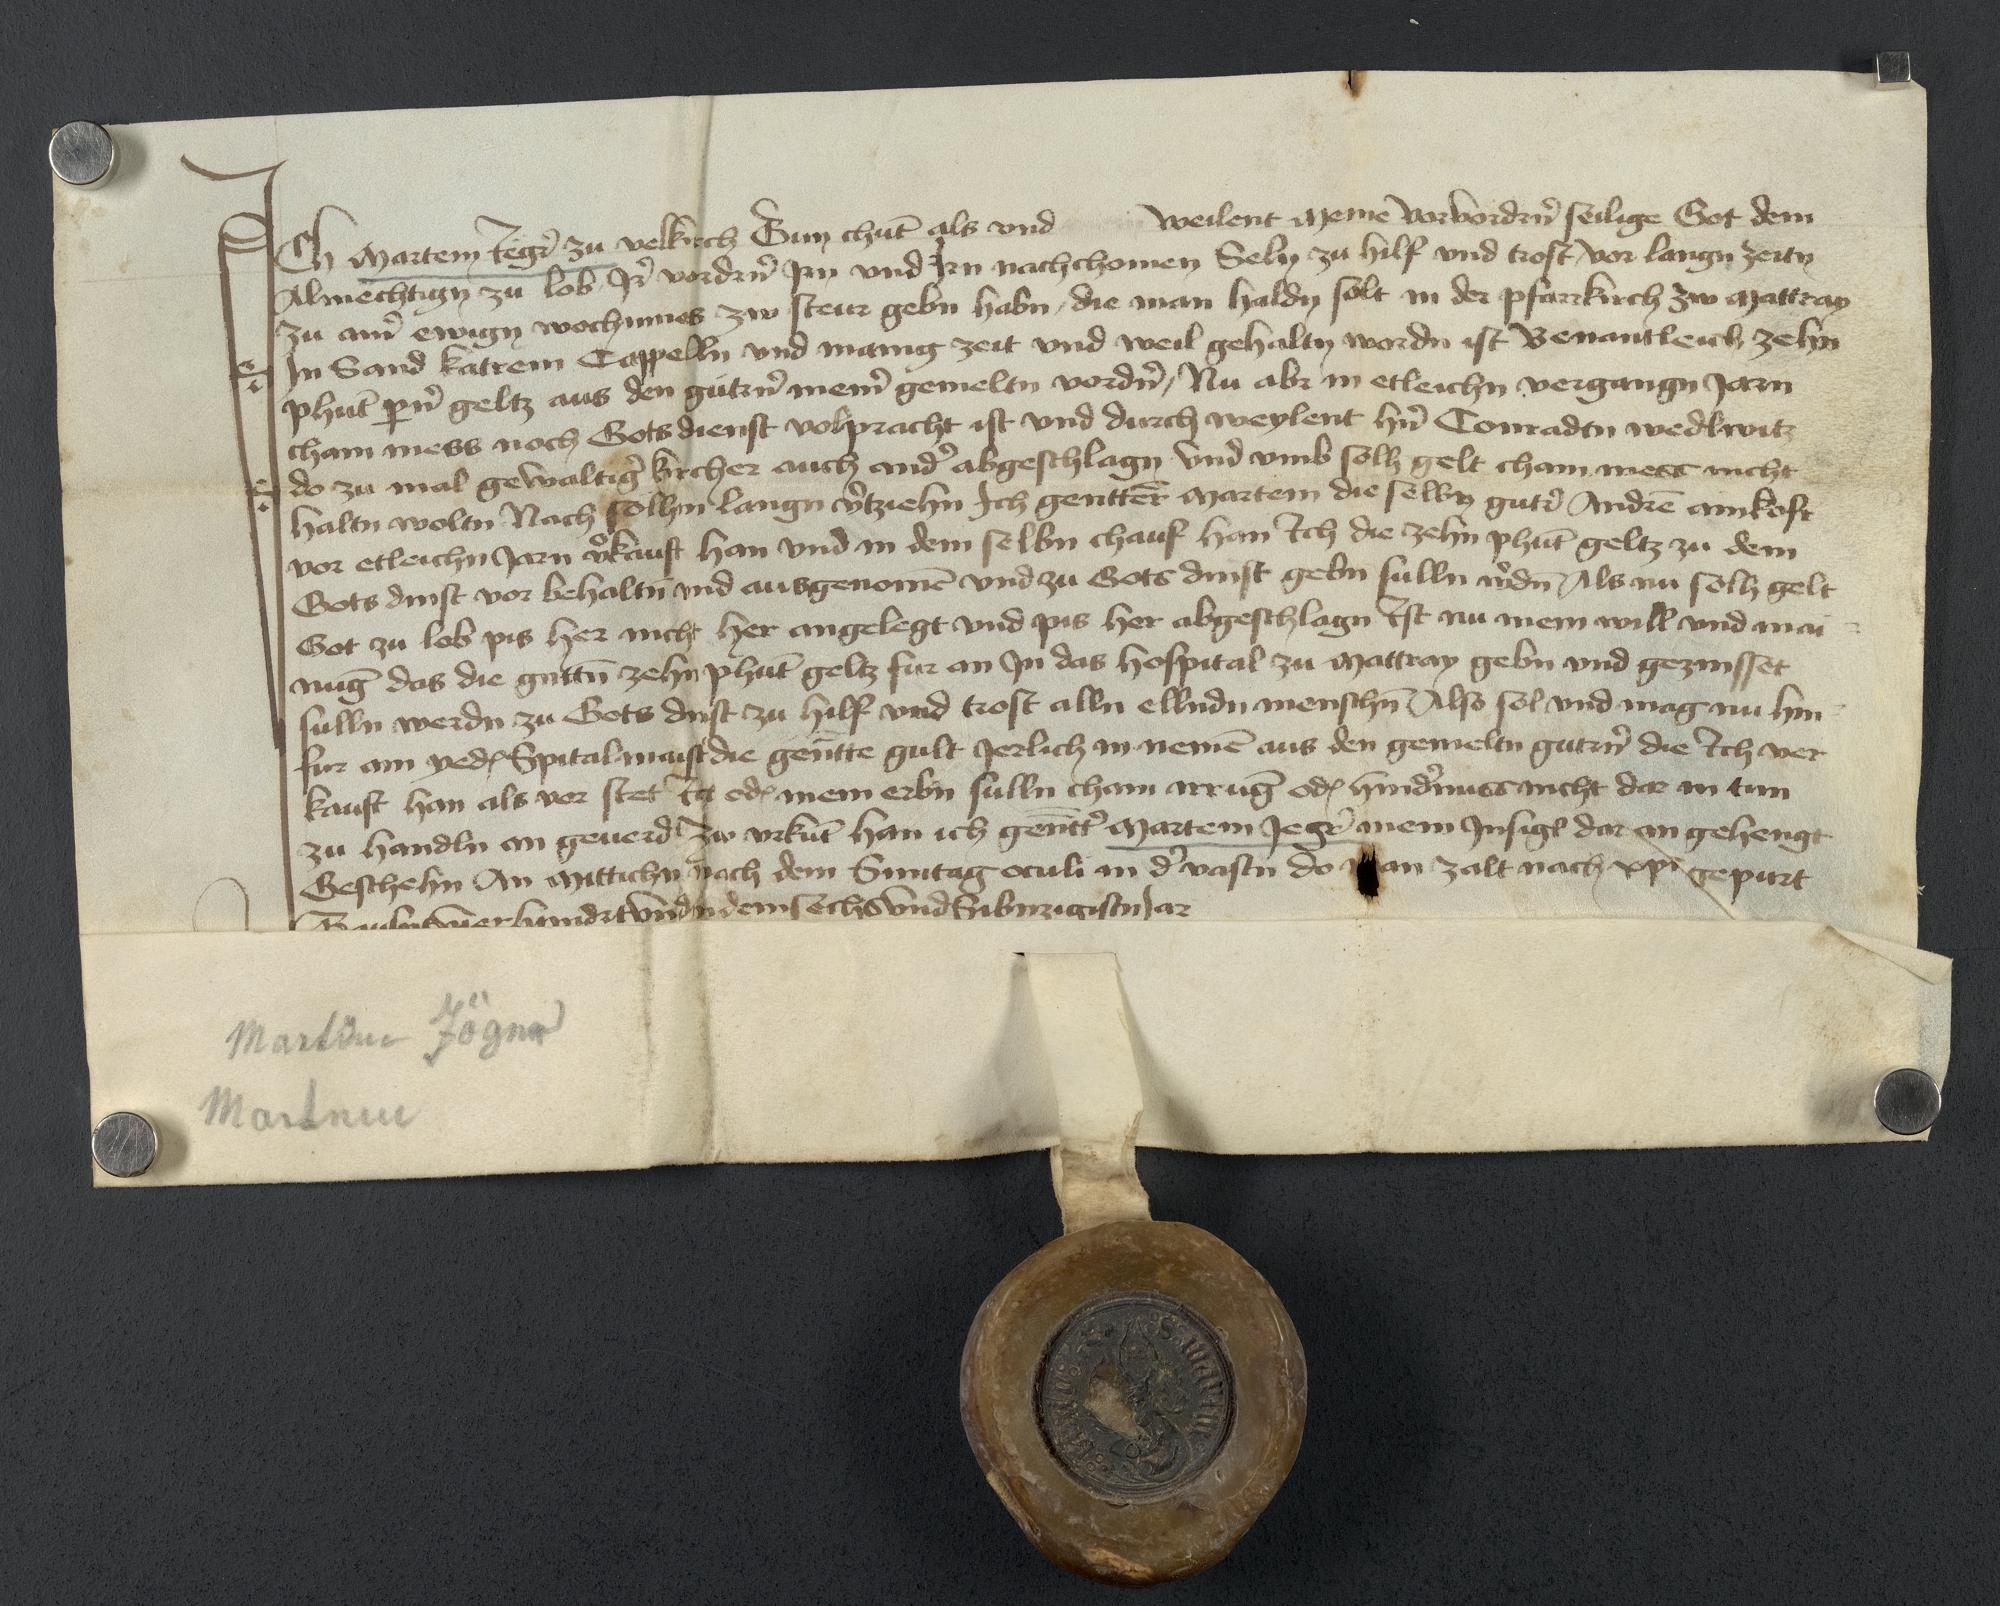 Ich Martein Jeg̃r zu velkirch Tun chūt als vnd weilent Meine Vorvordrn̄ selige Got dem
Almechtign zu lob Jr̄ vordrn̄ Jrn vnd Jrn nachchomen Seln zu hilf vnd trost vor langn zeitn
zu ain̄ ewign wochnmes zw steur gebn habn die man haldn solt in der pfarrkirch zw Mattray
In Sand katrein Cappelln vnd manig zeit vnd weil gehaltn wordn ist Benantleich zehn
phūt pn̄ geltz aus den gütrn̄ mein̄ gemeltn vordn̄ Nu abr in etleichn vergangn Jarn
chain mess noch Gotsdienst volpracht ist vnd durch weylent hn̄ Conradtn wedlwitz
do zu mal gewaltig̃ kircher auch and̃ abgeschlagn vnd vmb solh gelt chain mess nicht
haltn woltn Nach solhm langn v̄tziehn Ich genttēr Martein die selbn gutr̄ Andrē amkofr
vor etleichn Jarn v̄kauft han vnd in dem selbn chauf han Ich die zehn phūt geltz zu dem
Gots dinst vor behaltn̄ vnd ausgenomē vnd zu Gots dinst gebn sulln w̄dn̄ Als nu solh gelt
Got zu lob pis her nicht her angelegt vnd pis her abgeschlagn Ist nu mein will vnd mai
nug̃ das die gnttn̄ zehn phūt geltz fur an Jn das hospital zu Mattray gebn vnd gezinsset
sulln werdn zu Gots dinst zu hilf vnd trost alln ellndn menschn̄ Also sol vnd mag nu hin
fur ain yed Spitalmaist die gen̄tte gult Jerlich in nemē aus den gemeltn gutrn̄ die Ich ver
kauft han als vor stet Ich od mein erbn sulln chain irrūg od hindr̄nuss nicht dar in tun
zu handln an geuerd Zw vrkūt han ich gen̄tt̃ Martein Jeg̃r mein Jnsigl dar an gehengt
Geschehn An Mittichn nach dem Suntag oculi in d̃ vastn do man zalt nach xp̄i gepurt
Tausntvierhundrt vnd in dem sechs vnd Sibnzigistn Jar
Jögner